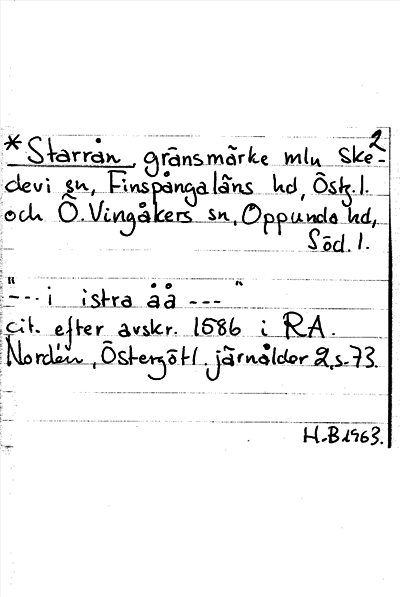 2
*Starrån, gränsmärke mln Ske-
devi sn, Finspångaläns hd, Östg. l.
och Ö. Vingåkers sn, Oppunda hd,
Söd. l.
"--- i istra åå ---"
cit. efter avskr. 1586 i RA.
Nordén, Östergötl. järnålder 2, s. 73.
H.B 1963.